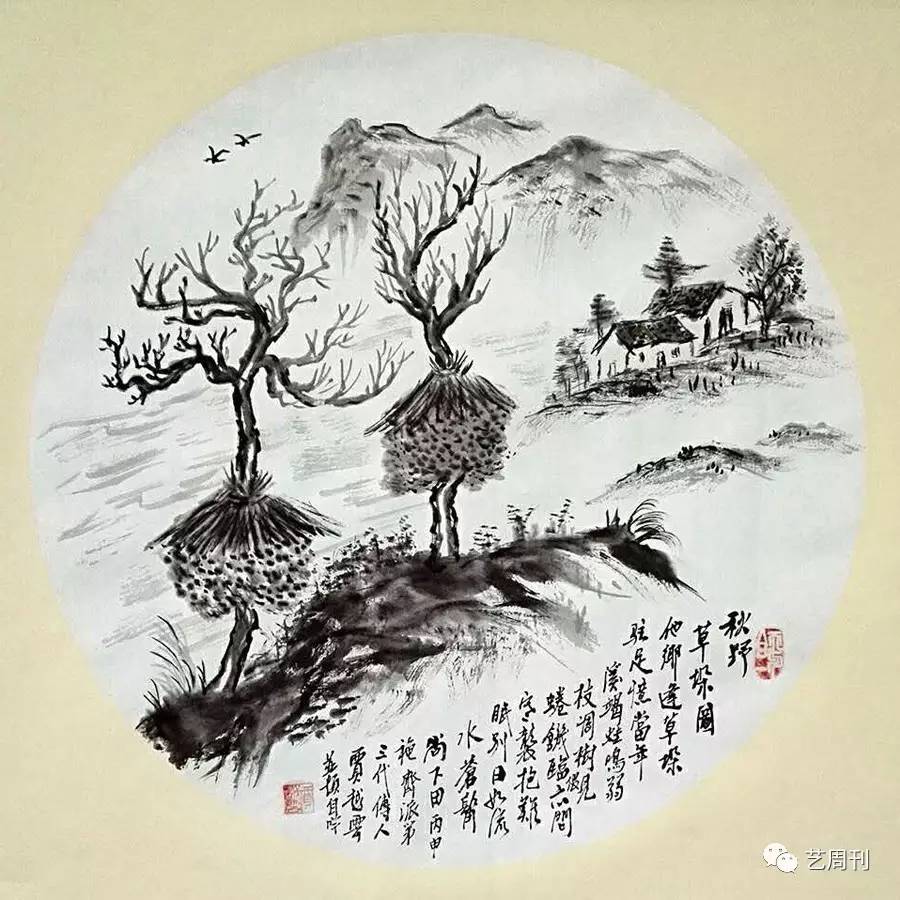 秋野
草垛圖
他鄉逢草垛
駐足憶當年
溪竭蛙鳴弱
枝凋樹觀
蜷饑臨六閣
寒襲抱難
眠別日如流
水蒼鬢
尚下田丙申
施齊派第
三代傳人
賈越雲
並題自吟
艺周刊